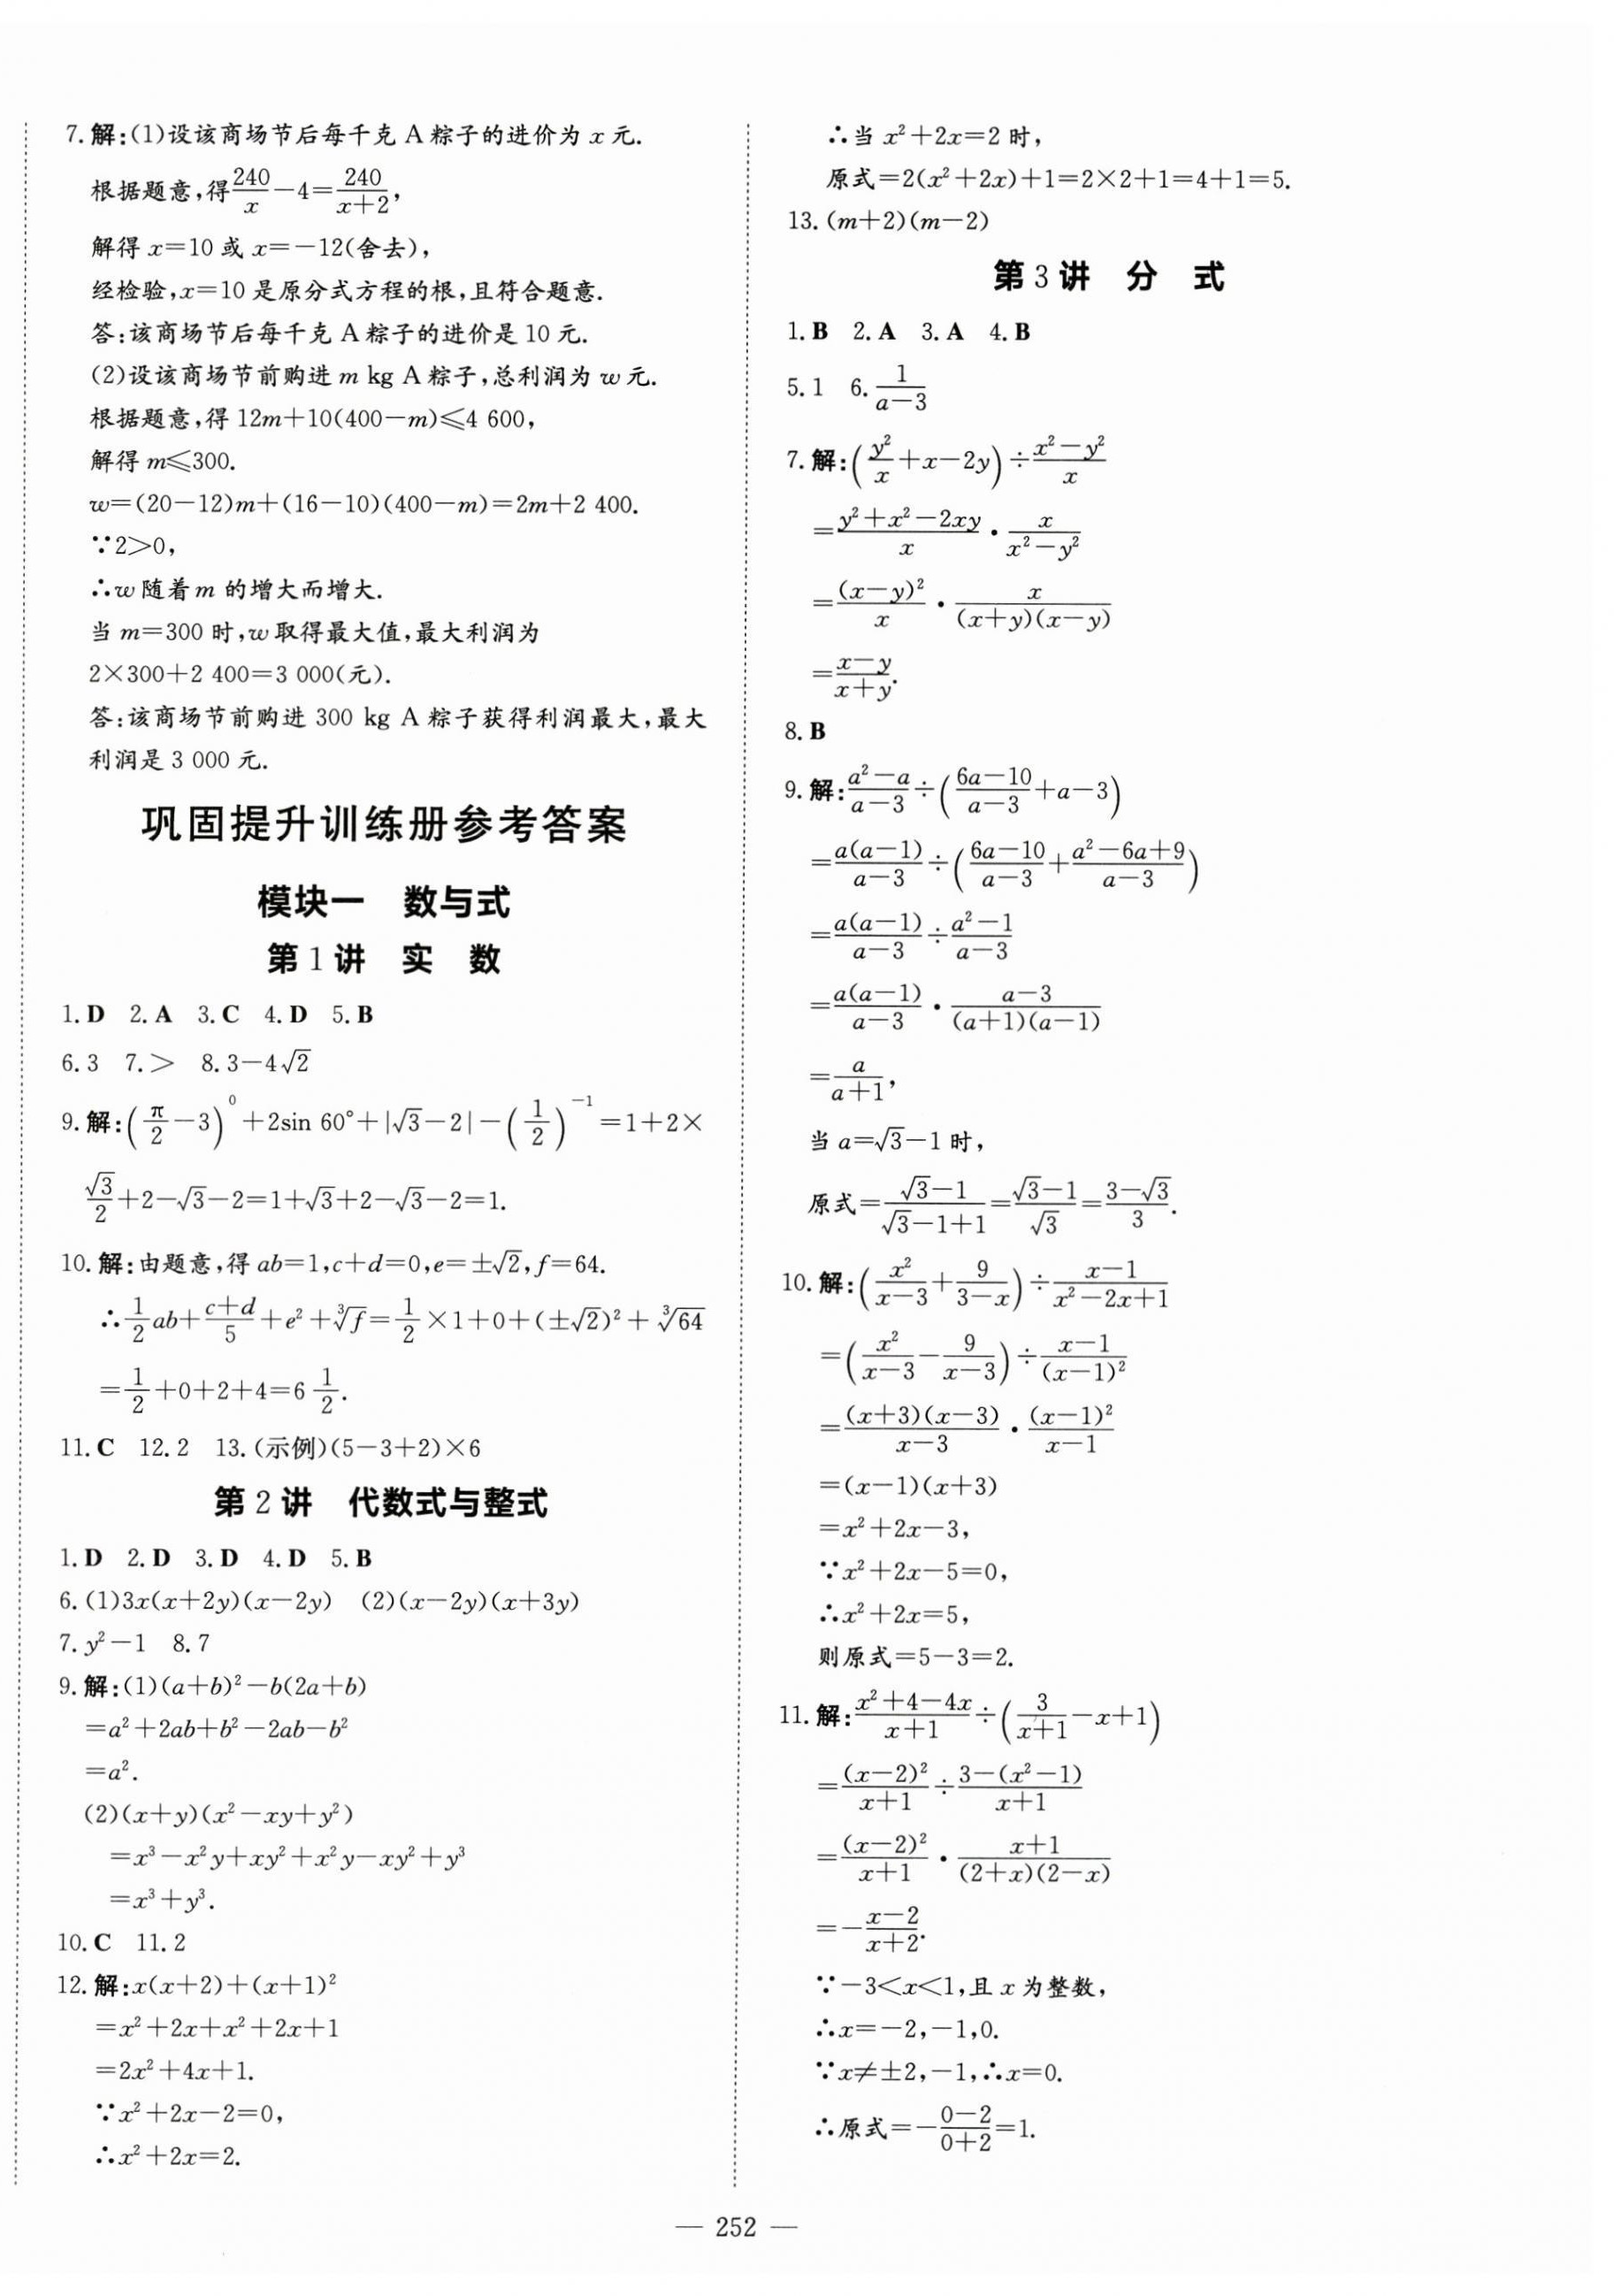 7.解:(1)设该商场节后每千克 A 粽子的进价为 x 元.
根据题意,得240/x−4=240/(x+2),
解得 x=10 或 x=−12(舍去),
经检验,x=10 是原分式方程的根,且符合题意.
答:该商场节后每千克 A 粽子的进价是 10 元.
(2)设该商场节前购进 m kg A 粽子,总利润为 w 元.
根据题意,得 12m+10(400−m)⩽4 600,
解得 m⩽300.
w=(20−12)m+(16−10)(400−m)=2m+2 400.
∵2>0,
∴w 随着 m 的增大而增大.
当 m=300 时,w 取得最大值,最大利润为
2×300+2 400=3 000(元).
答:该商场节前购进 300 kg A 粽子获得利润最大,最大
利润是 3 000 元.
巩固提升训练册参考答案
模块一 数与式
第 1 讲 实 数
1.D 2.A 3.C 4.D 5.B
6.3 7.> 8.3−4√2
9.解:(π/2−3)⁰+2sin 60°+|√3−2|−(1/2)⁻¹=1+2×
√3/2+2−√3−2=1+√3+2−√3−2=1.
10.解:由题意,得 ab=1,c+d=0,e=±√2,f=64.
∴1/2ab+(c+d)/5+e²+∛f=1/2×1+0+(±√2)²+∛64
=1/2+0+2+4=6 1/2.
11.C 12.2 13.(示例)(5−3+2)×6
第 2 讲 代数式与整式
1.D 2.D 3.D 4.D 5.B
6.(1)3x(x+2y)(x−2y) (2)(x−2y)(x+3y)
7.y²−1 8.7
9.解:(1)(a+b)²−b(2a+b)
=a²+2ab+b²−2ab−b²
=a².
(2)(x+y)(x²−xy+y²)
=x³−x²y+xy²+x²y−xy²+y³
=x³+y³.
10.C 11.2
12.解:x(x+2)+(x+1)²
=x²+2x+x²+2x+1
=2x²+4x+1.
∵x²+2x−2=0,
∴x²+2x=2.
∴当 x²+2x=2 时,
原式=2(x²+2x)+1=2×2+1=4+1=5.
13.(m+2)(m−2)
第 3 讲 分 式
1.B 2.A 3.A 4.B
5.1 6.1/(a−3)
7.解:(y²/x+x−2y)÷(x²−y²)/x
=(y²+x²−2xy)/x·x/(x²−y²)
=(x−y)²/x·x/((x+y)(x−y))
=(x−y)/(x+y).
8.B
9.解:(a²−a)/(a−3)÷((6a−10)/(a−3)+a−3)
=a(a−1)/(a−3)÷((6a−10)/(a−3)+(a²−6a+9)/(a−3))
=a(a−1)/(a−3)÷(a²−1)/(a−3)
=a(a−1)/(a−3)·(a−3)/((a+1)(a−1))
=a/(a+1),
当 a=√3−1 时,
原式=(√3−1)/(√3−1+1)=(√3−1)/√3=(3−√3)/3.
10.解:(x²/(x−3)+9/(3−x))÷(x−1)/(x²−2x+1)
=(x²/(x−3)−9/(x−3))÷(x−1)/(x−1)²
=(x+3)(x−3)/(x−3)·(x−1)²/(x−1)
=(x−1)(x+3)
=x²+2x−3,
∵x²+2x−5=0,
∴x²+2x=5,
则原式=5−3=2.
11.解:(x²+4−4x)/(x+1)÷(3/(x+1)−x+1)
=(x−2)²/(x+1)÷(3−(x²−1))/(x+1)
=(x−2)²/(x+1)·(x+1)/((2+x)(2−x))
=−(x−2)/(x+2).
∵−3<x<1,且 x 为整数,
∴x=−2,−1,0.
∵x≠±2,−1,∴x=0.
∴原式=−(0−2)/(0+2)=1.
— 252 —